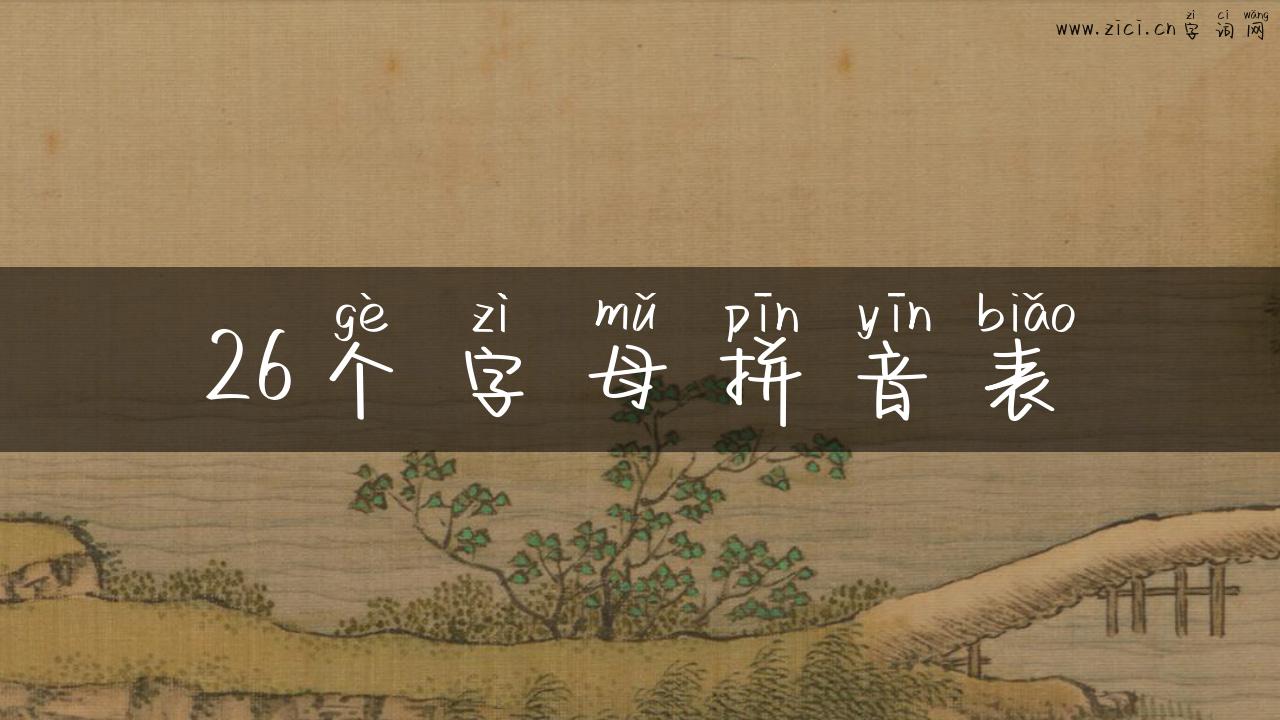 zì cí wǎng
www.zici.cn字词网
gè zì mǔ pīn yīn biǎo
26个字母拼音表